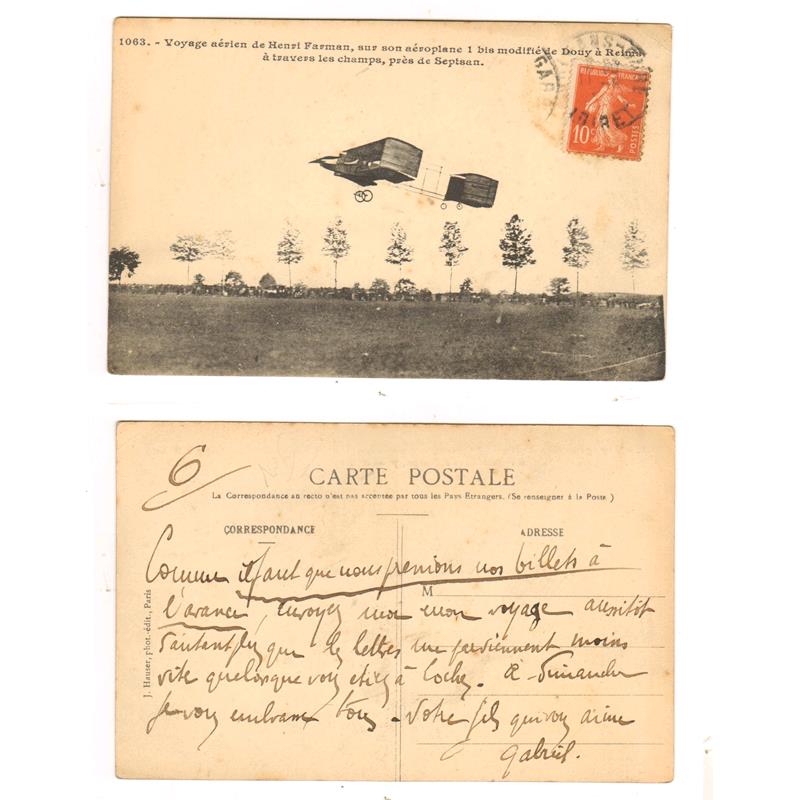 1063. - Voyage aérien de Henri Farman, sur son aéroplane 1 bis modifié de Douy à Reims,
à travers les champs, près de Septsan.
REPUBLIQUE FRANÇAISE
10c
POSTES
GARE
LOIRET
6
CARTE POSTALE
La Correspondance au recto n'est pas acceptée par tous les Pays Etrangers. (Se renseigner à la Poste)
CORRESPONDANCE
ADRESSE
M
J. Hauser, phot.-édit., Paris
Comme il faut que nous prenions nos billets à
l'avance, envoyez moi mon voyage aussitôt
d'autant plus que les lettres me parviennent moins
vite quelorsque vous étiez à Loches. A Dimanche
Je vous embrasse tous - Votre fils qui vous aime
Gabriel.